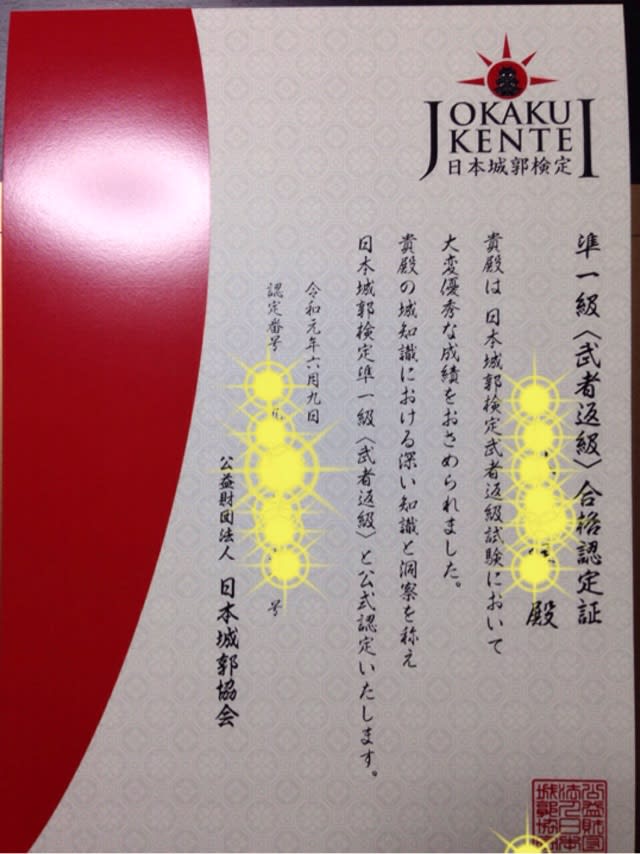 JOKAKU
KENTEI
日本城郭検定
準一級〈武者返級〉合格認定証
殿
貴殿は 日本城郭検定武者返級試験において
大変優秀な成績をおさめられました。
貴殿の城知識における深い知識と洞察を称え
日本城郭検定準一級〈武者返級〉と公式認定いたします。
令和元年六月九日
認定番号
号
公益財団法人 日本城郭協会